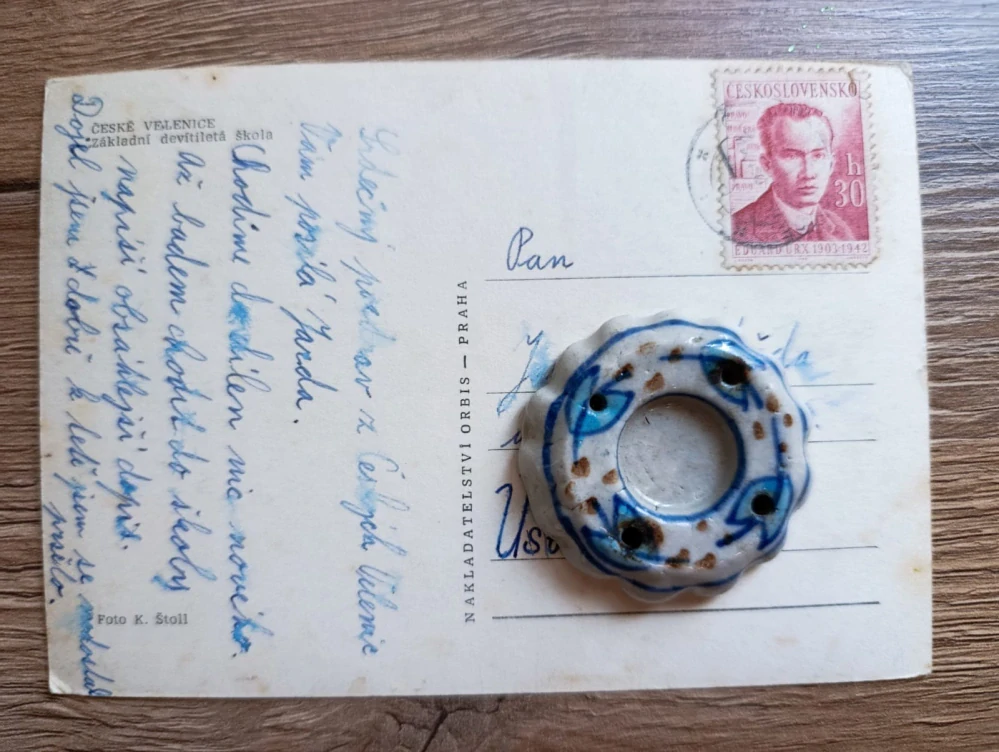 ČESKÉ VELENICE
základní devítiletá škola
Srdečný pozdrav z Českých Velenic
Vám posílá Jarda.
Chodíme do dílen nic nového.
Až budem chodit do školy
napíši obsáhlejší dopis.
Dojel jsem v dobře k ledi jsem se
pršlo.
Foto K. Štoll
NAKLADATELSTVÍ ORBIS — PRAHA
ČESKOSLOVENSKO
h
30
EDUARD URX 1903-1942
Pan